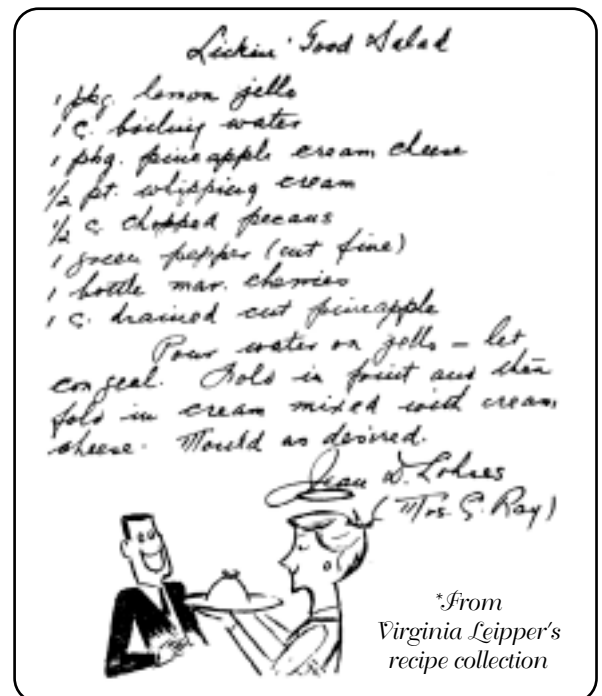 Lickin' Good Salad
1 pkg. lemon jello
1 c. boiling water
1 pkg. pineapple cream cheese
1/2 pt. whipping cream
1/2 c. chopped pecans
1 green pepper (cut fine)
1 bottle mar. cherries
1 c. drained cut pineapple
Pour water on jello – let
congeal. Fold in fruit and then
fold in cream mixed with cream
cheese. Mould as desired.
Jean D.
(Mrs. G. Ray)
*From
Virginia Leipper's
recipe collection